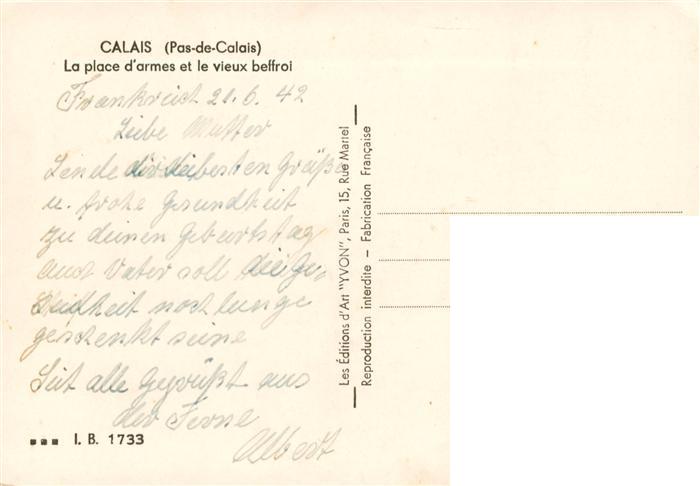 CALAIS (Pas-de-Calais)
La place d'armes et le vieux beffroi
Frankreich 21.6.42
Liebe Mutter
Sende dir die liebesten Grüße
u. frohe Gesundheit
zu deinen Geburtstag
auch Vater soll die Ge-
sundheit noch lange
geschenkt seine
Seit alle gegrüßt aus
der Ferne
Albert
I. B. 1733
Les Éditions d'Art "YVON", Paris, 15, Rue Martel
Reproduction interdite - Fabrication Française